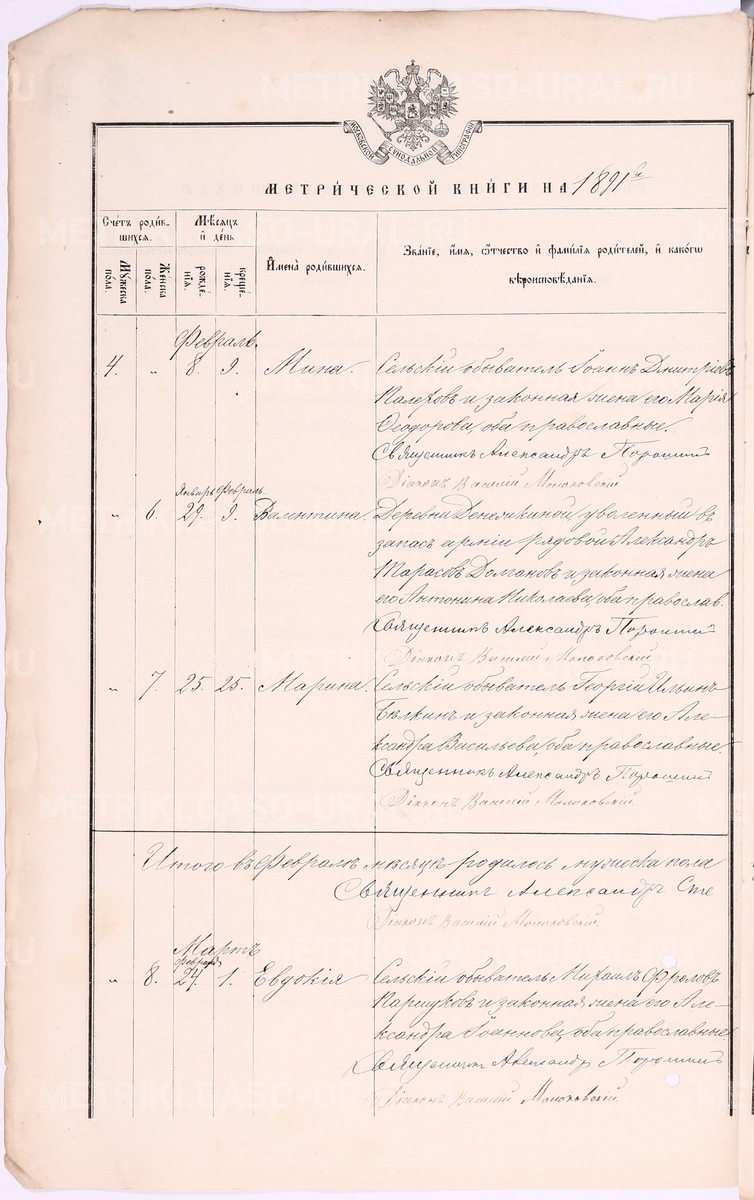 МОСКОВСКОЙ СѴНОДАЛЬНОЙ ТИПОГРАФІИ
МЕТРИ́ЧЕСКОЙ КНИ́ГИ НА 1891й
Счétъ роди́вшихся.
Мѣ́сяцъ и҆ де́нь
И҆мена̀ роди́вшихся.
Зва́нїе, и҆́мѧ, ѻ҆́тчество и҆ фами́лїѧ роди́телей, и҆ како́гѡ вѣроисповѣ́данїѧ.
Мꙋ́жеска по́ла.
Же́нска по́ла.
рожде́нїѧ.
креще́нїѧ.
Февраль.
4. " 8. 9. Мина. Сельскій обыватель Іоаннъ Дмитріевъ
и законная жена его Марія
Ѳеодорова, оба православные
Священникъ Александръ Порошинъ
Діаконъ Василій Молоковскій
Январь Февраль
" 6. 29. 9. Валентина. Деревни Денежкиной, уволенный въ
запасъ арміи рядовой Александръ
Тарасовъ Долгановъ и законная жена
его Антонина Николаева, оба православ.
Священникъ Александръ Порошинъ
Діаконъ Василій Молоковскій
" 7. 25. 25. Марина. Сельскій обыватель Георгій Ильинъ
Бѣлкинъ и законная жена его Але-
ксандра Васильева, оба православные.
Священникъ Александръ Порошинъ
Діаконъ Василій Молоковскій
Итого въ Февралѣ мѣсяцѣ родилось мужеска пола
Священникъ Александръ Сте
Діаконъ Василій Молоковскій
Мартъ
Февраля
" 8. 27. 1. Евдокія Сельскій обыватель Михаилъ Фроловъ
Паршуковъ и законная жена его Але-
ксандра Іоаннова, оба православные
Священникъ Александръ Порошинъ
Діаконъ Василій Молоковскій